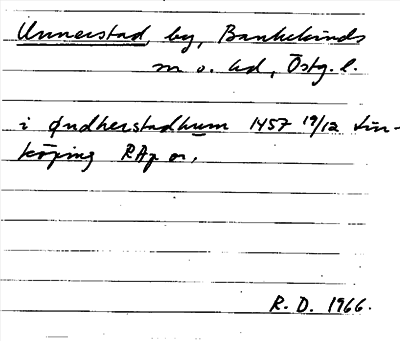 Unnerstad, by, Bankekinds
sn o. hd, Östg. l.
i ỏndherstadhum 1457 19/12 Lin-
köping RAp or.
R. D. 1966.